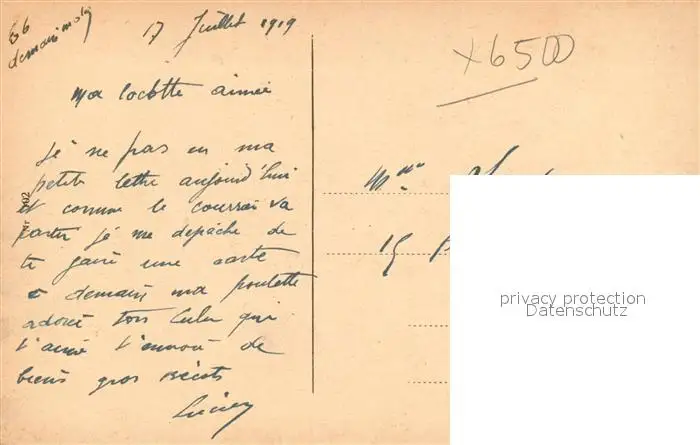 17 Juillet 1919
Ma cocotte aimée
Je ne pas eu ma
petite lettre aujourd'hui
et comme le courrai va
partir je me depache de
te faire une carte
a demain ma poulette
adoré ton Lulu qui
t'aime t'envoie de
biens gros
Lucien
x6500
Mme
15
privacy protection
Datenschutz